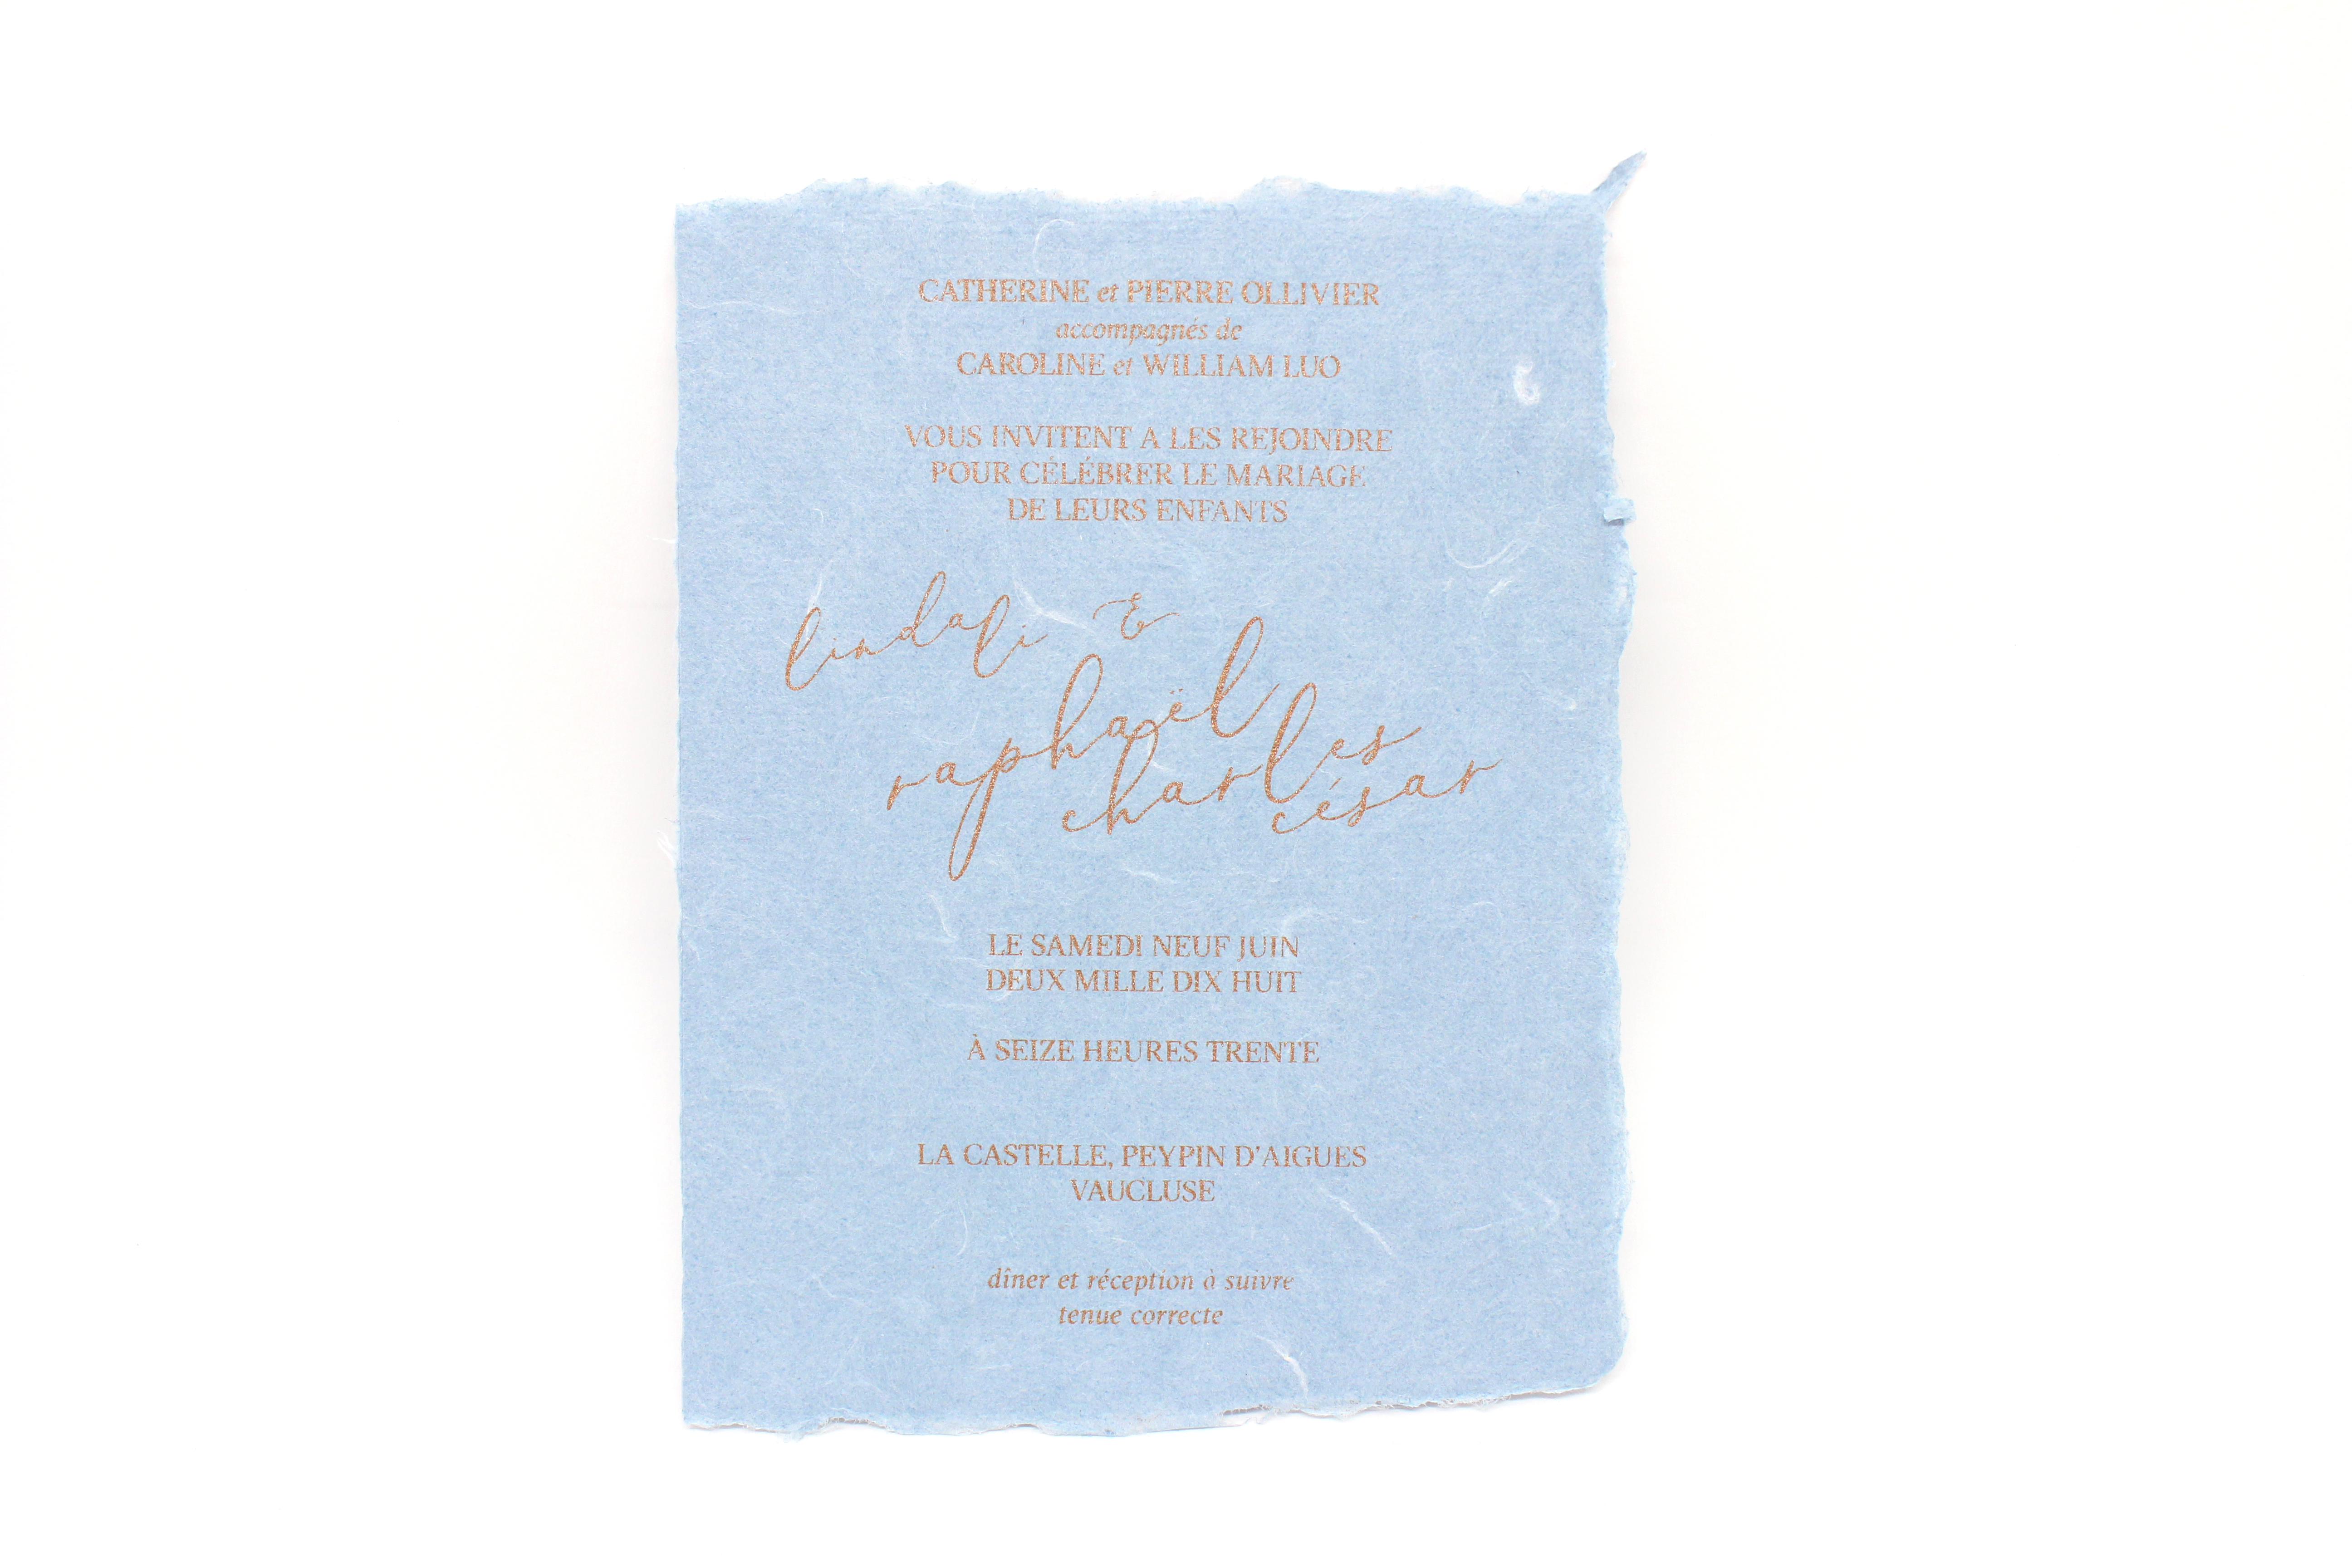 CATHERINE et PIERRE OLLIVIER
accompagnés de
CAROLINE et WILLIAM LUO
VOUS INVITENT A LES REJOINDRE
POUR CÉLÉBRER LE MARIAGE
DE LEURS ENFANTS
linda li &
raphaël
charles
césar
LE SAMEDI NEUF JUIN
DEUX MILLE DIX HUIT
À SEIZE HEURES TRENTE
LA CASTELLE, PEYPIN D'AIGUES
VAUCLUSE
dîner et réception à suivre
tenue correcte